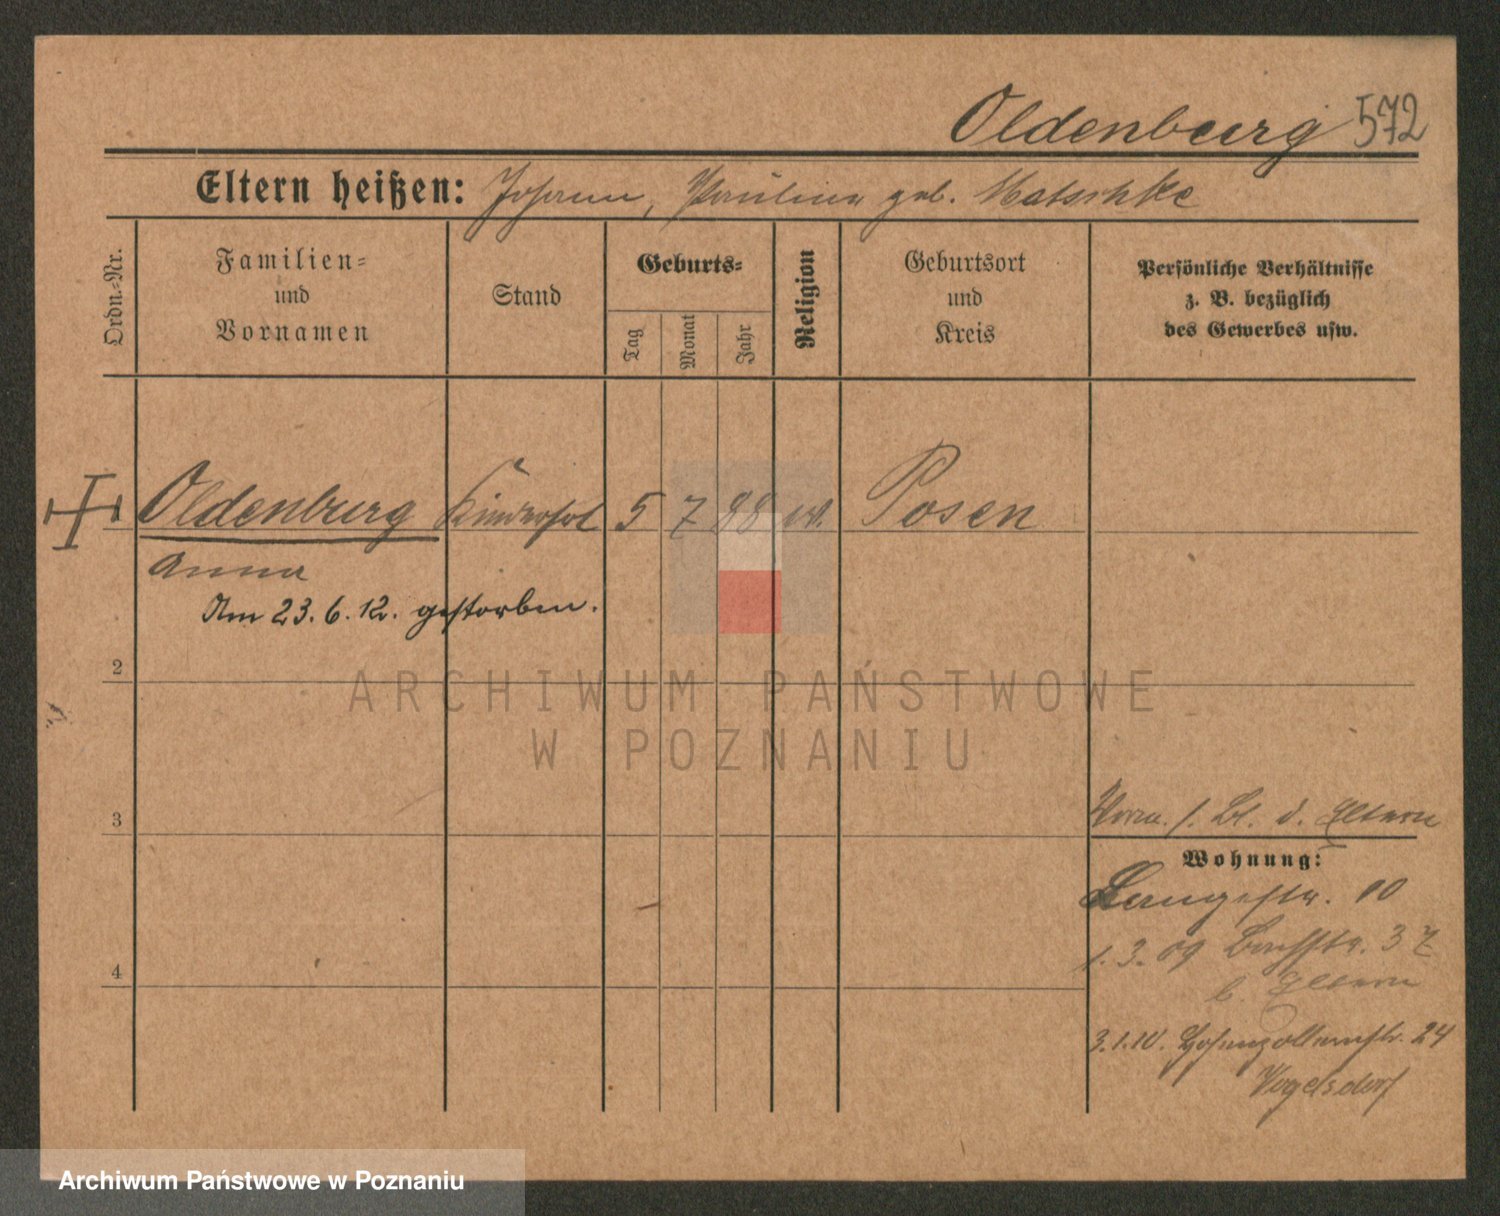 Oldenburg 572
Eltern heißen: Johann, Paulina geb. Matschke
Ordn.-Nr.
Familien-
und
Vornamen
Stand
Geburts-
Tag
Monat
Jahr
Religion
Geburtsort
und
Kreis
Persönliche Verhältnisse
z. B. bezüglich
des Gewerbes usw.
Oldenburg Kinderfrl 5 7 88 Posen
Anna
Am 23.6.12. gestorben.
2
3
4
ARCHIWUM PAŃSTWOWE
W POZNANIU
d. Eltern
Wohnung:
Langestr. 10
1.3.09 37
b. Eltern
3.1.10. Hohenzollernstr. 24
Vogelsdorf
Archiwum Państwowe w Poznaniu